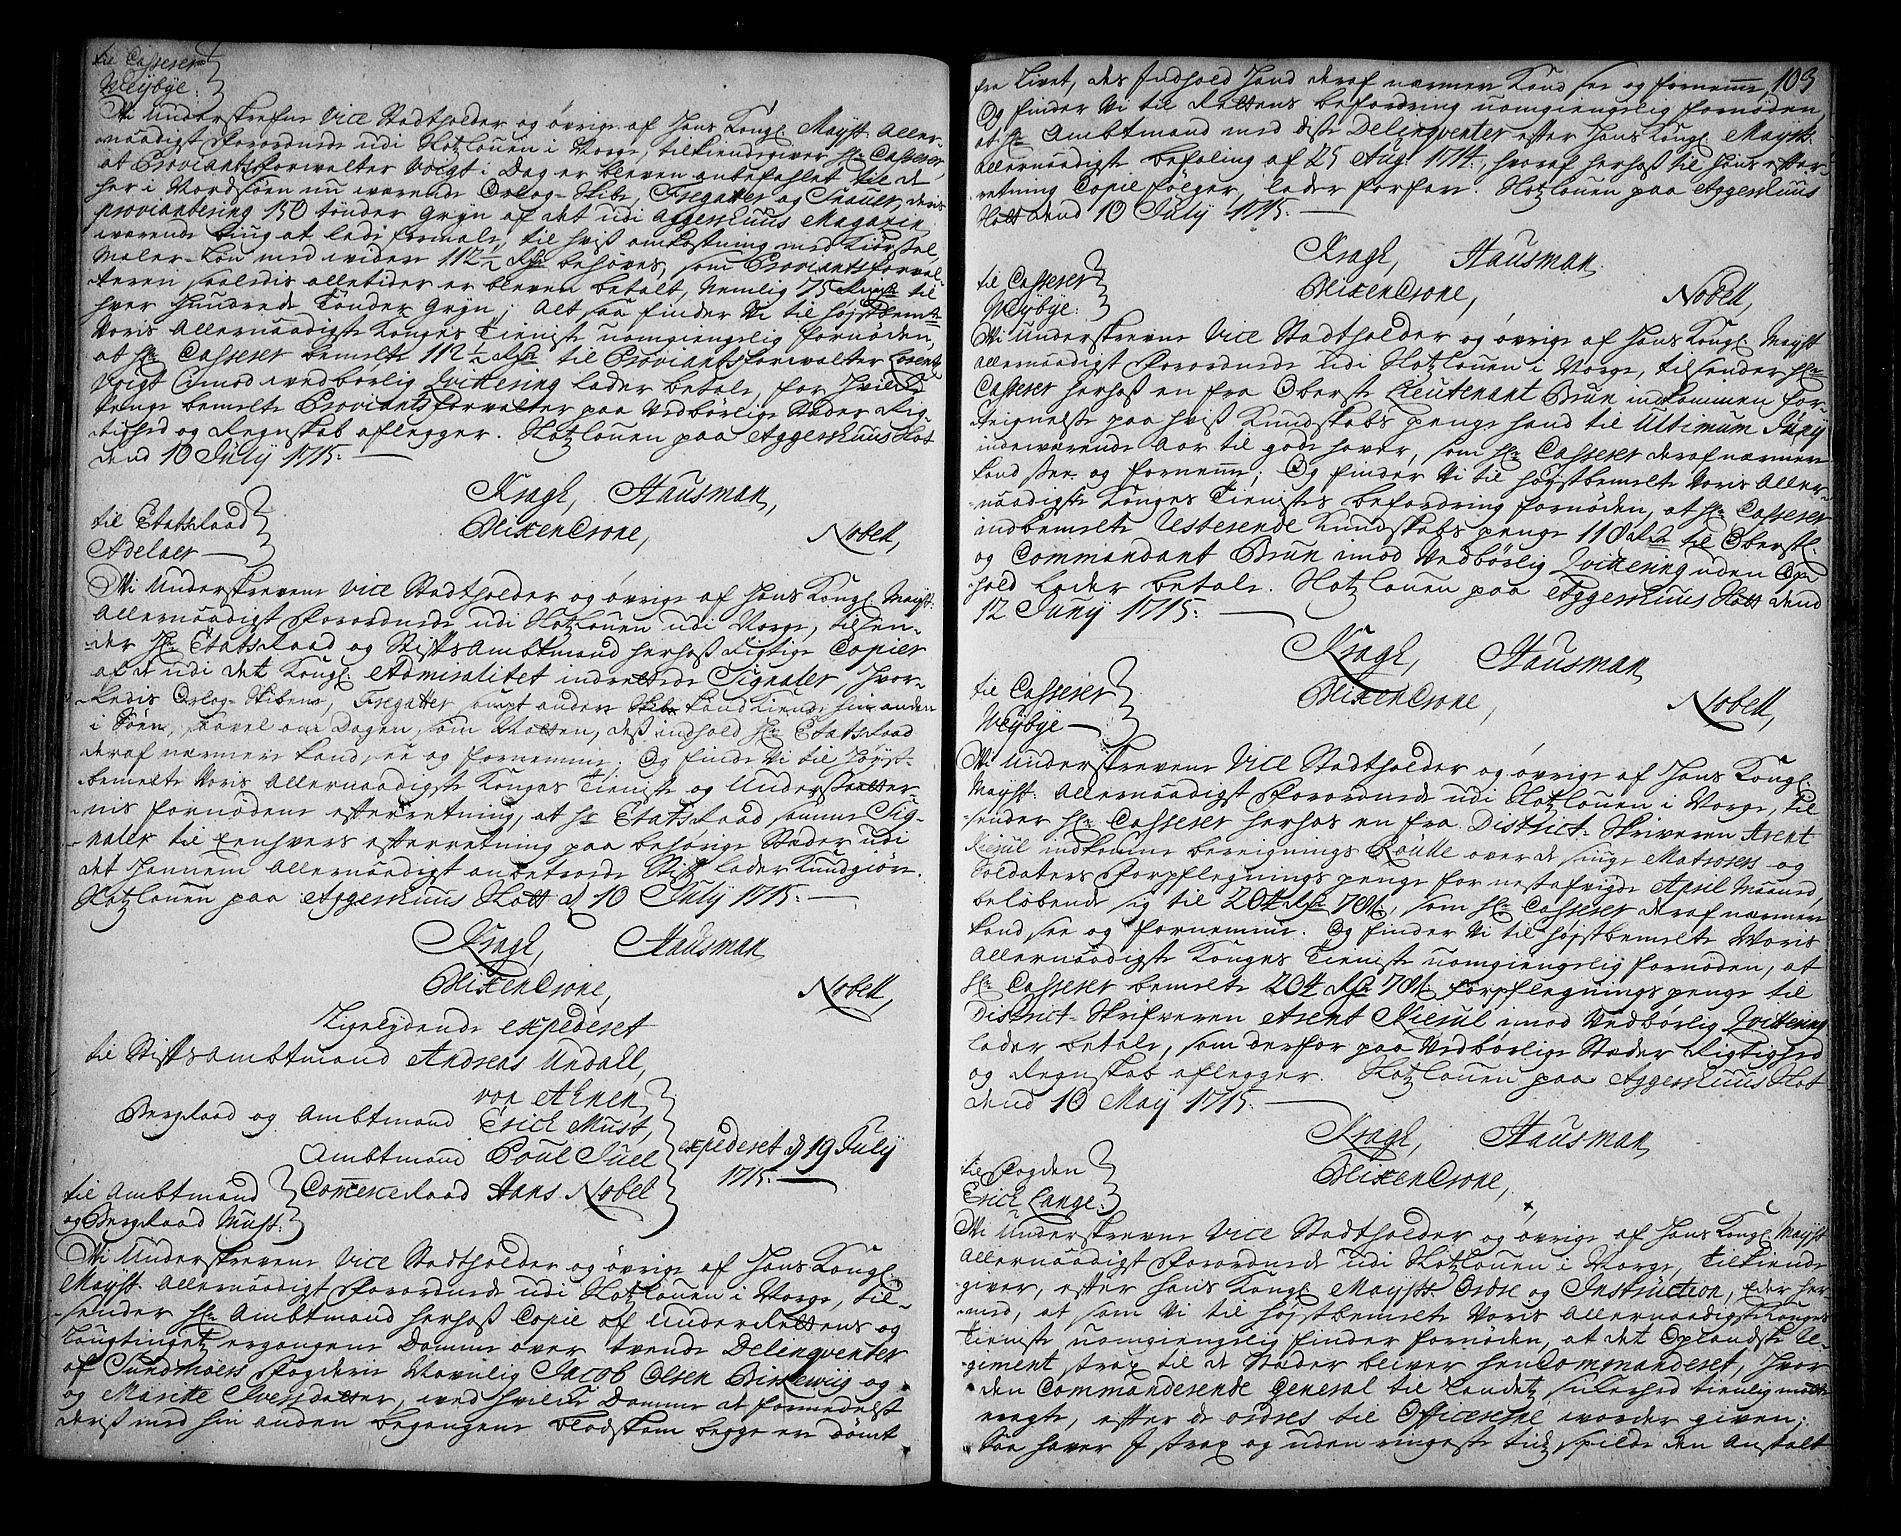 til Casserer
Weybye.
Wi Underskrefne Vice Stadtholder og övrige af Hans Kongl. Mayst. Aller-
naadigst Forordnede udi Slotzlouen i Norge, tilkiendegiver Hr. Casserer,
at Proviantsforwalter Voigt i Dag er bleven anbefahlet til de
her i Nordsöen nu werende Orlog-Skibe, Fregatter og Snauer, deris
proviantering 150 tönder Gryn af det udi Aggershuus Magazin
werende biug at lade formale, til hvis omkostning med Kiörsel,
Maler-Lön med widere 112½ Rdr behöves, som Proviantsforval-
teren saaledis alletider er bleven betalt, Nemlig 75 Rdr til
hver Hundrede Tönder Gryn; Alt saa finder Vi til höystbemte
Voris Allernaadigste Konges Tieniste uomgiengelig fornöden,
at Hr. Casserer bemelte 112½ Rdr til Proviantsforwalter Lorentz
Voigt imod wedbörlig Qvittering lader betale, for hvilke
penge bemelte Proviantsforvalter paa Vedbörlige Stæder Rig-
tighed og Regnskab aflegger. Slotzlouen paa Aggershuus Slot
dend 10 July 1715.
Kragh, Hausman,
BlixenCrone, Nobell,
til EtatsRaad
Adelaer
Wi Underskrevene Vice Stadtholder og övrige af Hans Kongl. Mayst.
Allernaadigst Forordnede udi Slotzlouen udi Norge, tilsen-
der Hr. EtatsRaad og StiftsAmbtmand herhoss Rigtige Copier
af de udi det Kongl. Admiralitet indrettede Signaler, hvor-
ledis Orlog-Skibene, Fregatter, samt andre Skibe kand kiende hin anden
i Söen, saavel om Dagen, som Natten, dess indhold Hr. EtatsRaad
deraf nærmere kand see og fornemme; Og finde Vi til Höyst-
bemelte Voris Allernaadigste Konges Tieniste og Undersaatter-
nis fornödene efterretning, at Hr. EtatsRaad samme Sig-
naler til Eenhvers efterretning paa behörige Stæder udi
det hannem Allernaadigst anbetroede Stift lader kundgiöre.
Slotzlouen paa Aggershuus Slott d. 10 July 1715.
Kragh, Hausman
BlixenCrone, Nobell,
Ligelydende expederet
til Stiftsambtmand Andreas Undall,
von Ahnen,
BergRaad og Ambtmand Erich Must,
Ambtmand Poul Juel
CommerceRaad Hans Nobel
expederet d. 19 July
1715.
til Ambtmand
og BergRaad Must.
Wi Underskrevene Vice Stadtholder og övrige af Hans Kongl.
Mayst. Allernaadigst Forordnede udi Slotzlouen i Norge, til-
sender Hr. Ambtmand herhoss Copie af UnderRettens og
Laugtingetz ergangene Domme over tvende Delinqventer
af Sundmöers Fogderie Navnlig Jacob Olsen og
og Marite Iversdatter, wed hvilke Domme at formedelst
deriss med hin anden begangene blodskam begge ere dömt
103
fra Livet, des Indhold Hand deraf nærmere Kand see og fornemme,
Og finder Vi til Rettens befordring uomgiengelig fornöden,
at Hr. Ambtmand med disse Delinqventer efter Hans Kongl. Maysts.
Allernaadigste befaling af 25 Aug. 1714, hvoraf herhoss til hans efter-
retning Copie fölger, lader forfare. Slotzlouen paa Aggershuus
Slott dend 10 July 1715.
Kragh, Hausman,
BlixenCrone, Nobell,
til Casserer
Weybye.
Wi Underskrevene Vice Stadtholder og övrige af Hans Kongl. Mayst.
Allernaadigst Forordnede udi Slotzlouen i Norge, tilsender Hr.
Casserer herhoss en fra Oberste Lieutenant Brun indkommen for-
teignelse paa hviss Kundskabs penge hand til Ultimum Juny
indeværende Aar til gode haver, som Hr. Casserer deraf nærmere
kand see og fornemme; Og finder Vi til höystbemelte Voris Aller-
naadigste Konges Tienistes befordring fornöden, at Hr. Casserer
indbemelte Resterende Kundskabs penge 118 Rdr til Oberstl.
og Commandant Brun imod Vedbörlig Qvittering uden Op-
hold lader betale. Slotzlouen paa Aggershuus Slott dend
12 Juny 1715.
Kragh, Hausman
BlixenCrone, Nobell,
til Casserer
Weybye
Wi Underskrevene Vice Stadtholder og övrige af Hans Kongl.
Mayst. Allernaadigst Forordnede udi Slotzlouen i Norge, til-
sender Hr. Casserer herhos en fra District-Skriveren Arent
indkomne bereignings Rulle over de siuge Matroser og
Soldaters Forpflegnings penge for nestafvigte April Maaned,
belöbende sig til 204 Rdr 70 s, som Hr. Casserer deraf nærmere
kand see og fornemme. Og finder Vi til höystbemelte Voris
Allernaadigste Konges Tieniste uomgiengelig fornöden, at
Hr. Casserer bemelte 204 Rdr 70 s. Forpflegnings penge til
District-Skrifveren Arent imod Vedbörlig Qvittering
lader betale, som derfor paa Vedbörlige Stæder Rigtighed
og Regnskab aflegger. Slotzlouen paa Aggershuus Slot
dend 10 May 1715.
Kragh, Hausman
BlixenCrone,
til Fogden
Erich Lange.
Wi Underskrevene Vice Stadtholder og övrige af Hans Kongl. Mayst.
Allernaadigst Forordnede udi Slotzlouen i Norge, Tilkiende
giver, efter Hans Kongl. Maysts. Ordre og Instruction, Eder her
med, at som Vi til höystbemelte Voris Allernaadigste Konges
Tieniste uomgiengelig finder fornöden, at det Oplandske Re-
giment strax til de Stæder bliver hen Commanderet, hvor
den Commanderende General til Landetz sikerhed tienligst
eragte, efter de ordres til Officererne worder given;
Saa haver I strax og uden ringeste tidz spilde den Anstalt